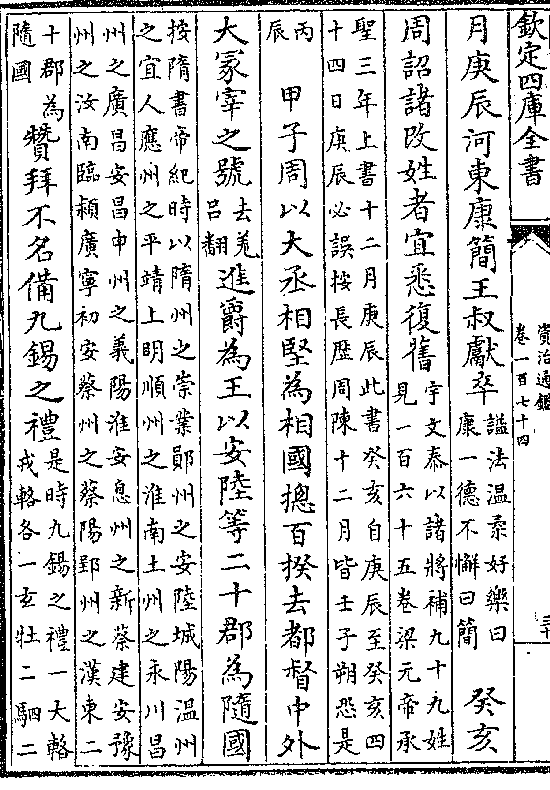 欽定四庫全書
資治通鑑
卷一百七十四
三十
月庚辰河東康簡王叔獻卒
諡法温柔好樂曰
康一德不懈曰簡
癸亥
周詔諸改姓者宜悉復舊
宇文泰以諸將補九十九姓
見一百六十五卷梁元帝承
聖三年上書十二月庚辰此書癸亥自庚辰至癸亥四
十四日庚辰必誤按長歴周陳十二月皆壬子朔恐是
丙
辰
甲子周以大丞相堅為相國摠百揆去都督中外
大冢宰之號
去羌
吕翻
進爵為王以安陸等二十郡為隨國
按隋書帝紀時以隋州之崇業鄖州之安陸城陽温州
之宜人應州之平靖上明順州之淮南土州之永川昌
州之廣昌安昌申州之義陽淮安息州之新蔡建安豫
州之汝南臨潁廣寧初安蔡州之蔡陽郢州之漢東二
十郡為
隨國
贊拜不名備九錫之禮
是時九錫之禮一大輅
戎輅各一玄牡二駟二